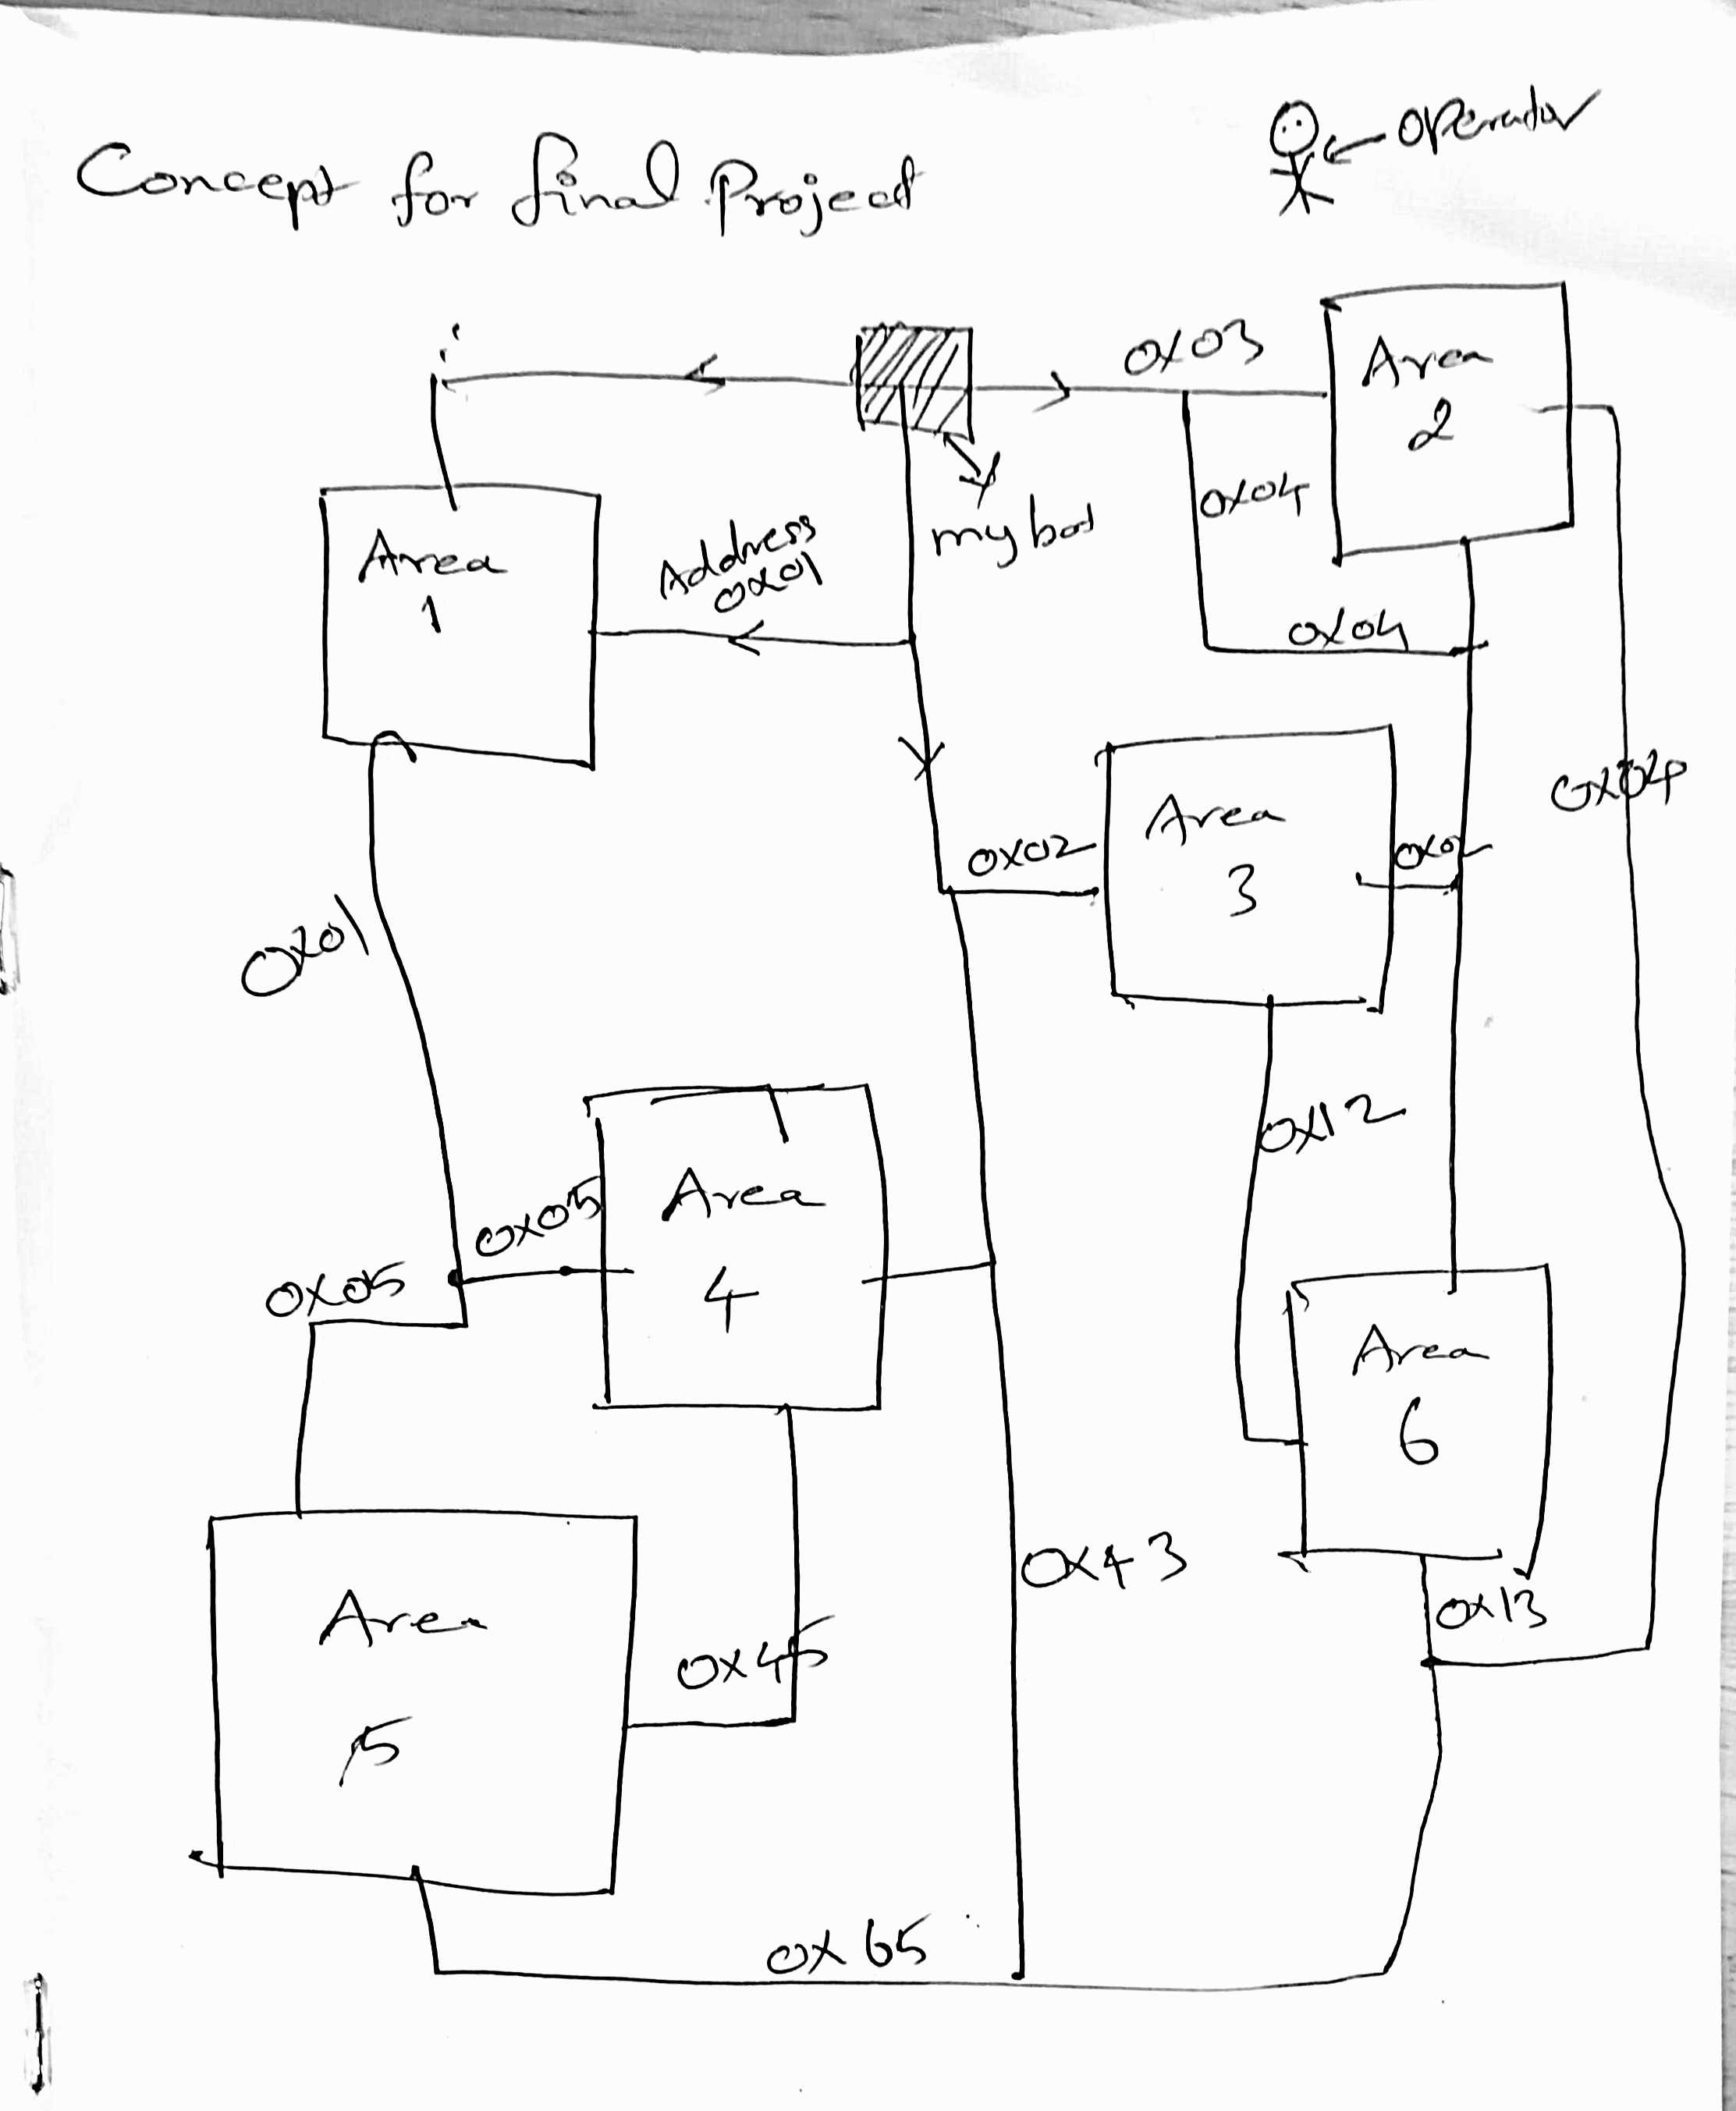 Concept for final Project
operator
0x03
Area
2
my bot
0x04
Address
0x01
Area
1
0x04
0x04
Area
3
0x02
0x02
0x01
0x12
Area
4
0x05
0x05
Area
6
0x43
0x13
Area
5
0x45
0x65